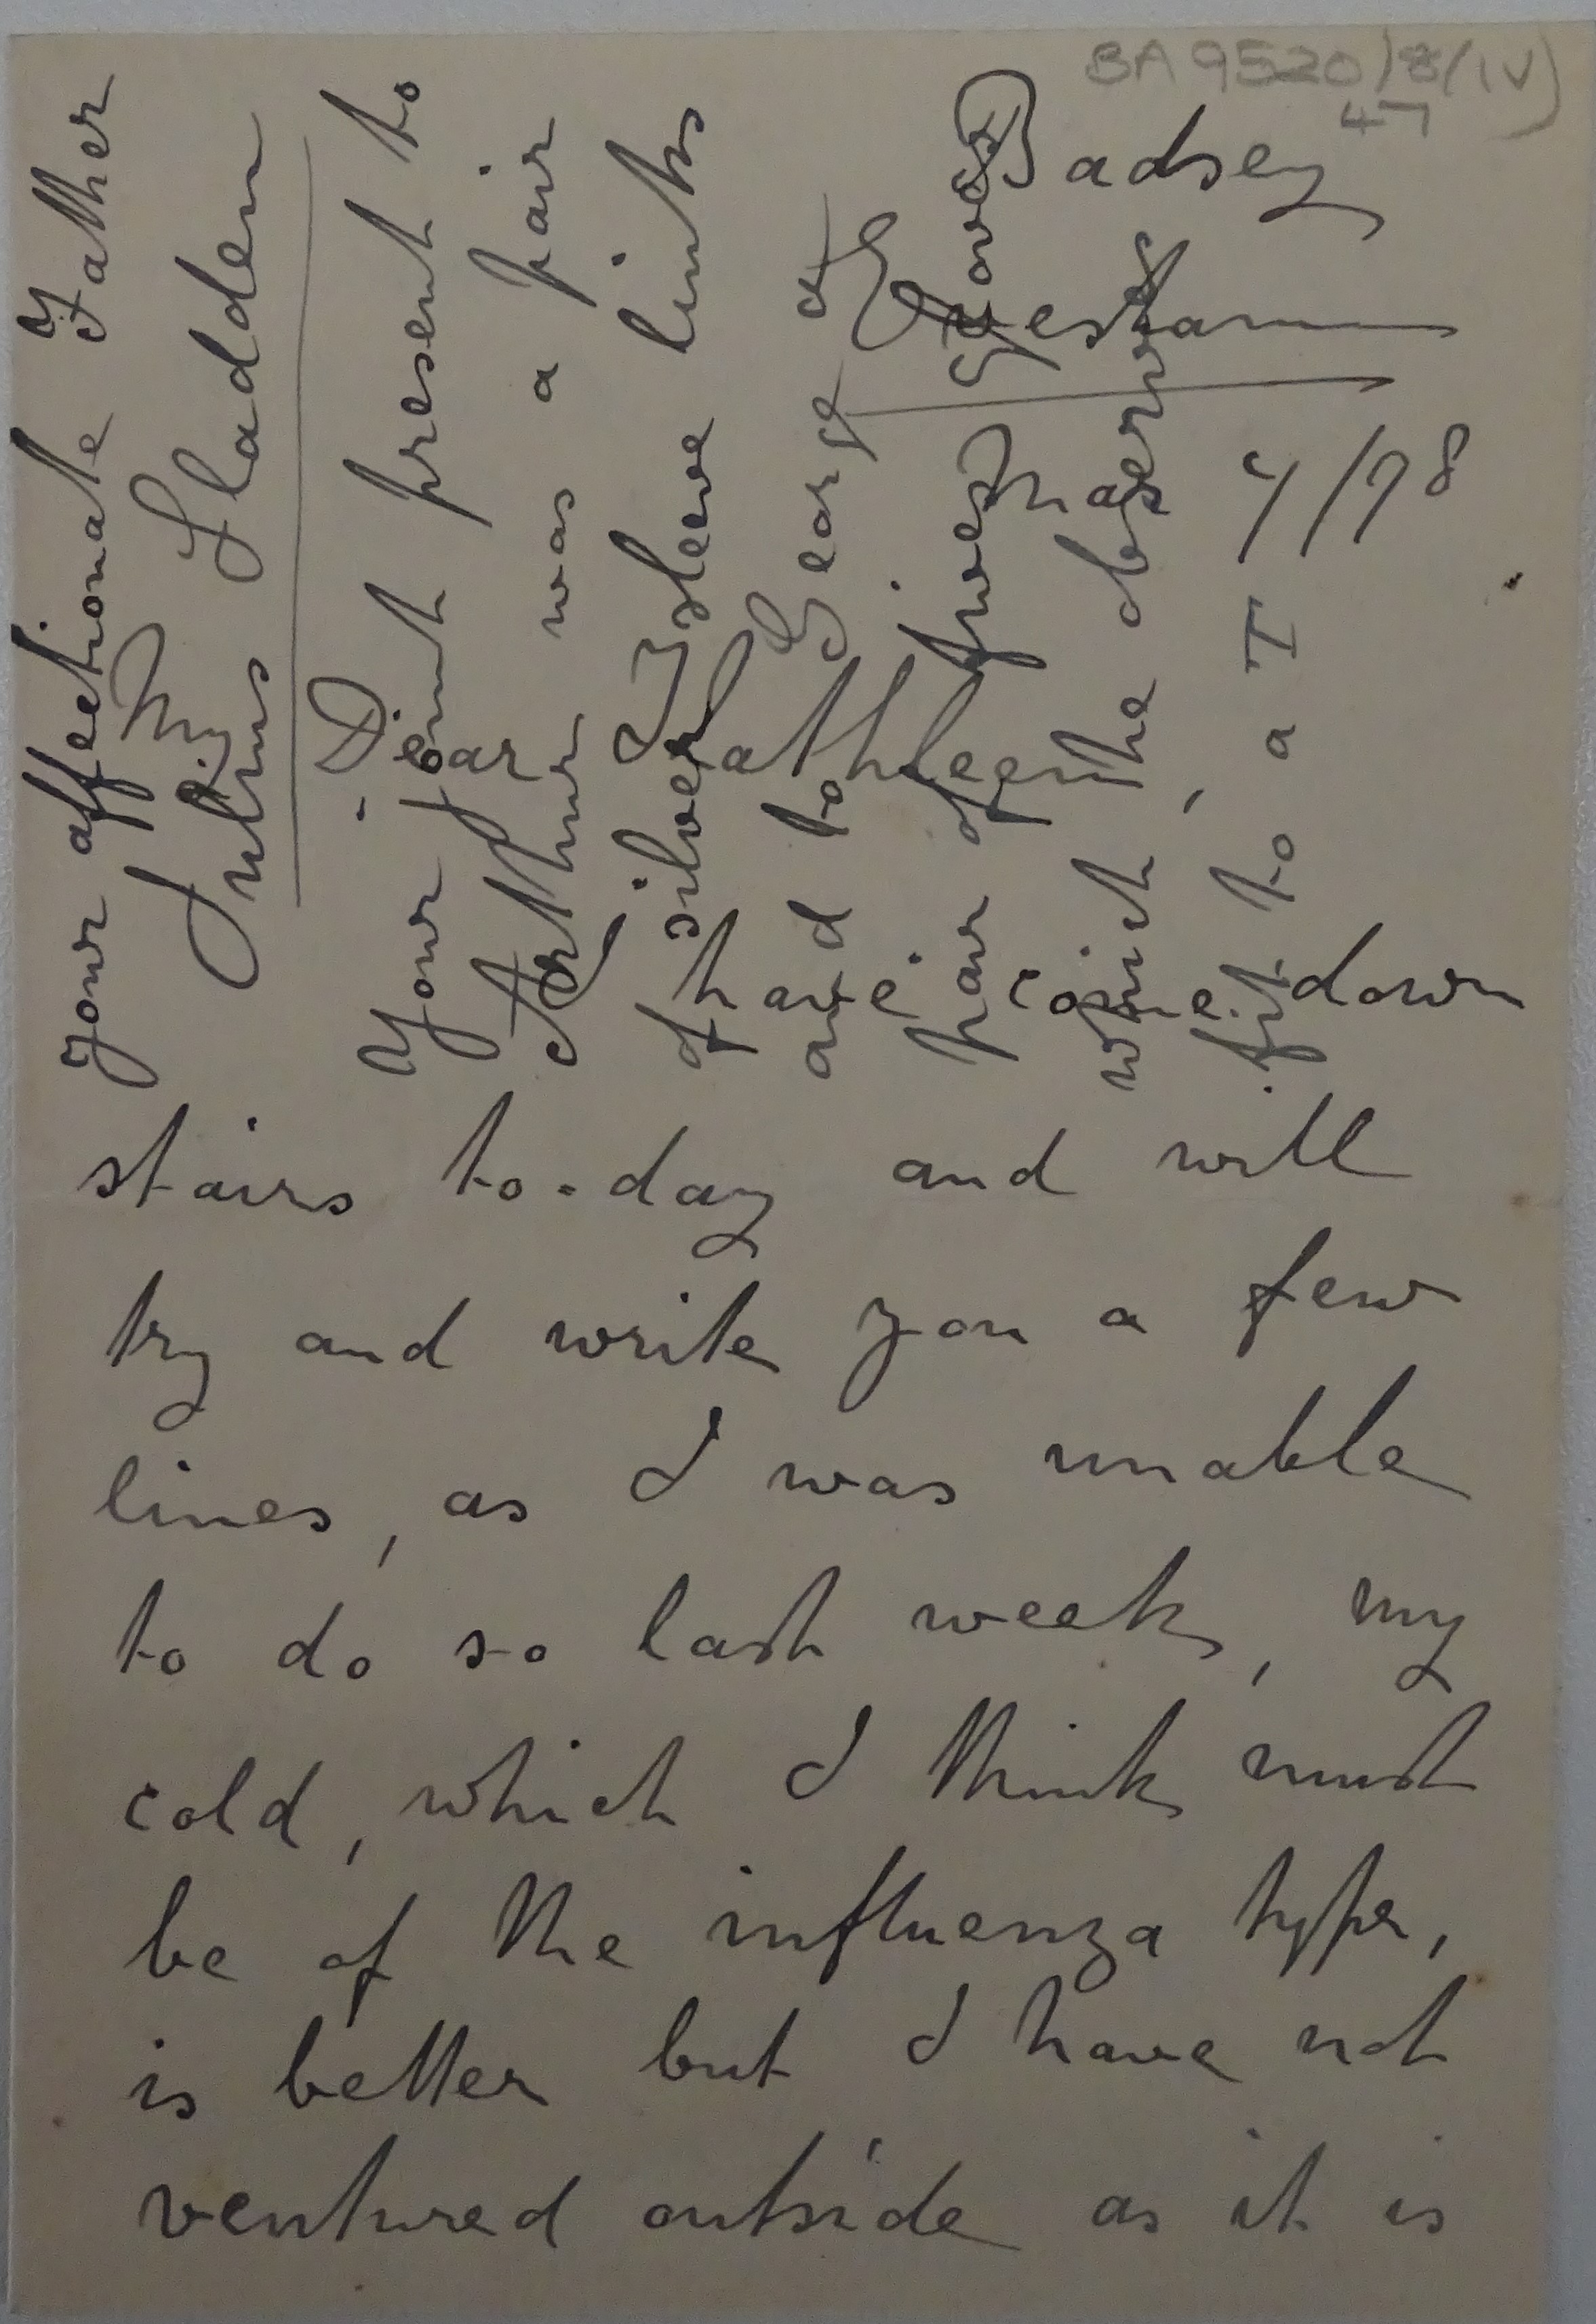 BA 9520/8/(IV)
47
Badsey
Evesham
Mar 4/98
My
Dear
Kathleen
I have come down
stairs to-day and will
try and write you a few
lines, as I was unable
to do so last week, my
cold, which I think must
be of the influenza type,
is better but I have not
ventured outside as it is
your affectionate Father
Julius Sladden
Your joint present to
Arthur was a pair
of silver sleeve links
and to George a
pair of fives gloves
which, he observes
fit to a T